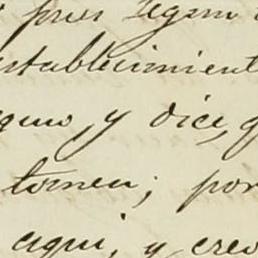 pues segun
stablecimient
y dice, q
tomen; por
aqui, y creo